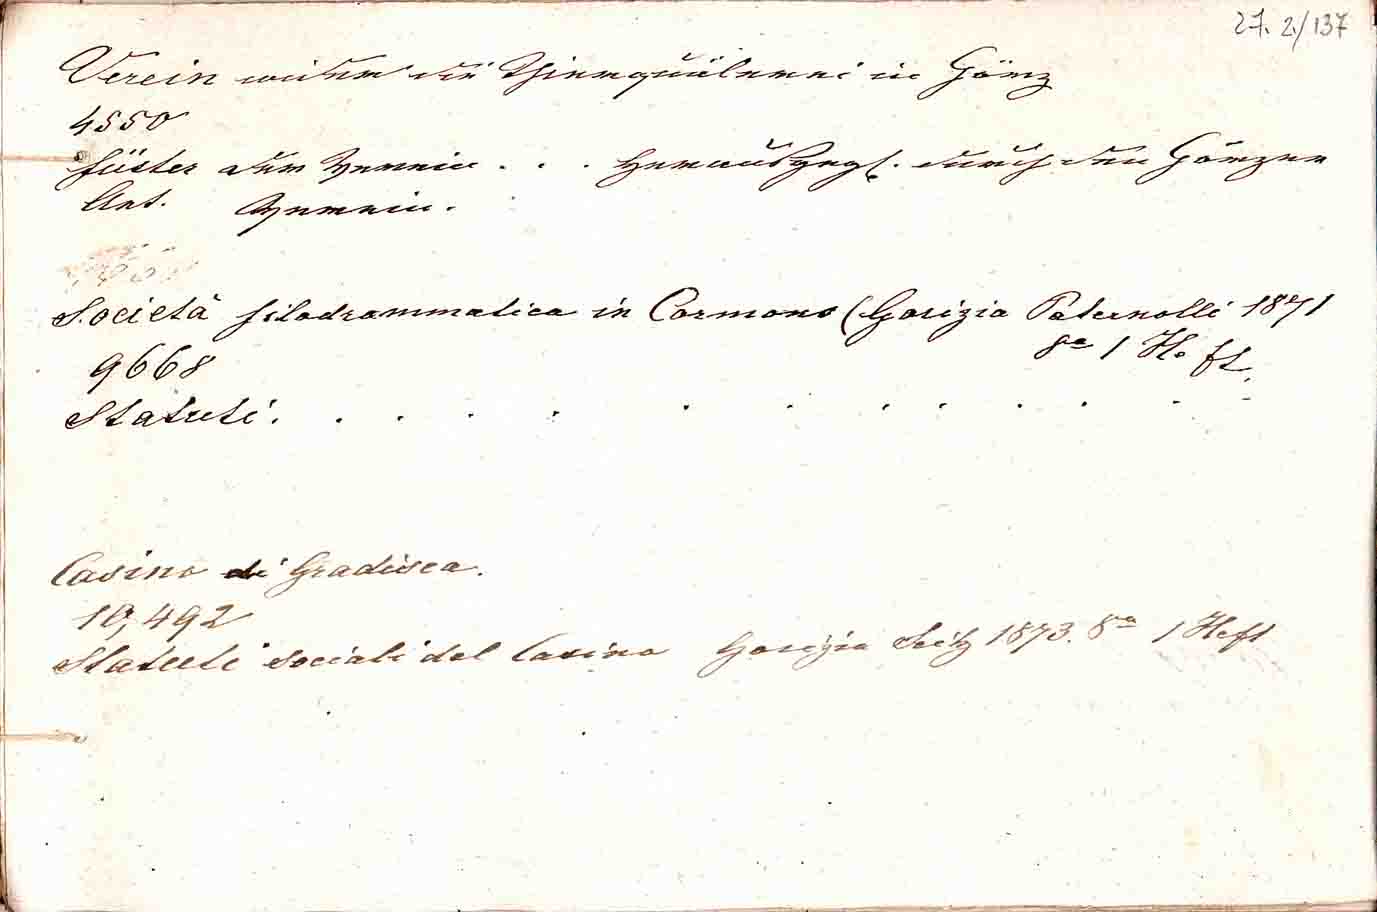 27. 2./137
Verein wider die Thierquälerei in Görz
4550
Füster der Verein . . . Herausgegb. durch den Görzer
Ant. Verein.
Società filodrammatica in Cormons (Gorizia Paternolli 1871
9668 8º 1 Heft.
Statuti. . . . . . . . . . . . .
Casino di Gradisca.
10,492
Statuti sociali del Casino Gorizia Seitz 1873. 8º 1 Heft